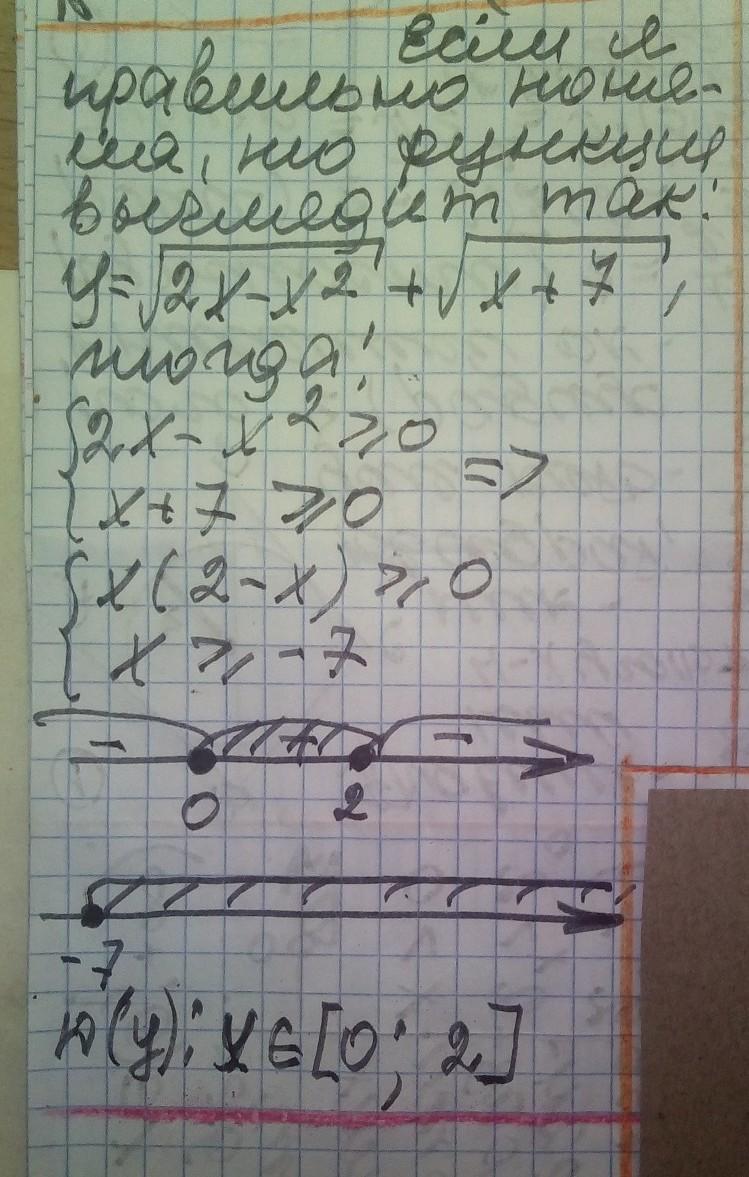 Если я
правильно поня-
ла, то функция
выглядит так:
y=√2x-x² + √x+7,
тогда:
{2x-x²⩾0
x+7⩾0 =>
{x(2-x)⩾0
x⩾-7
- + -
0 2
-7
D(y): x∈[0; 2]